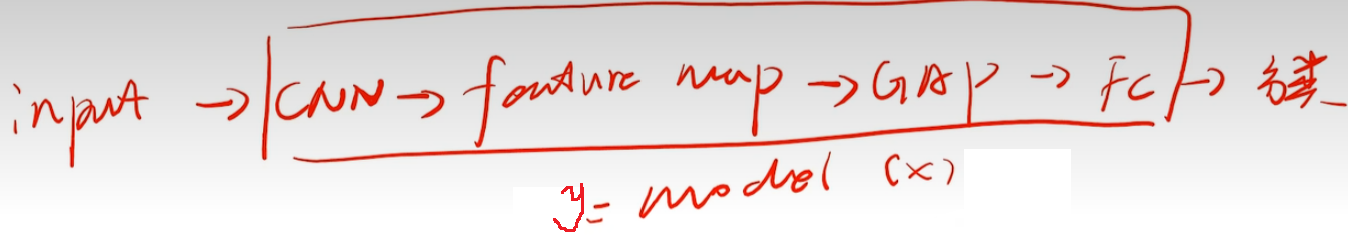 input → CNN → feature map → GAP → FC → 分类
y = model (x)